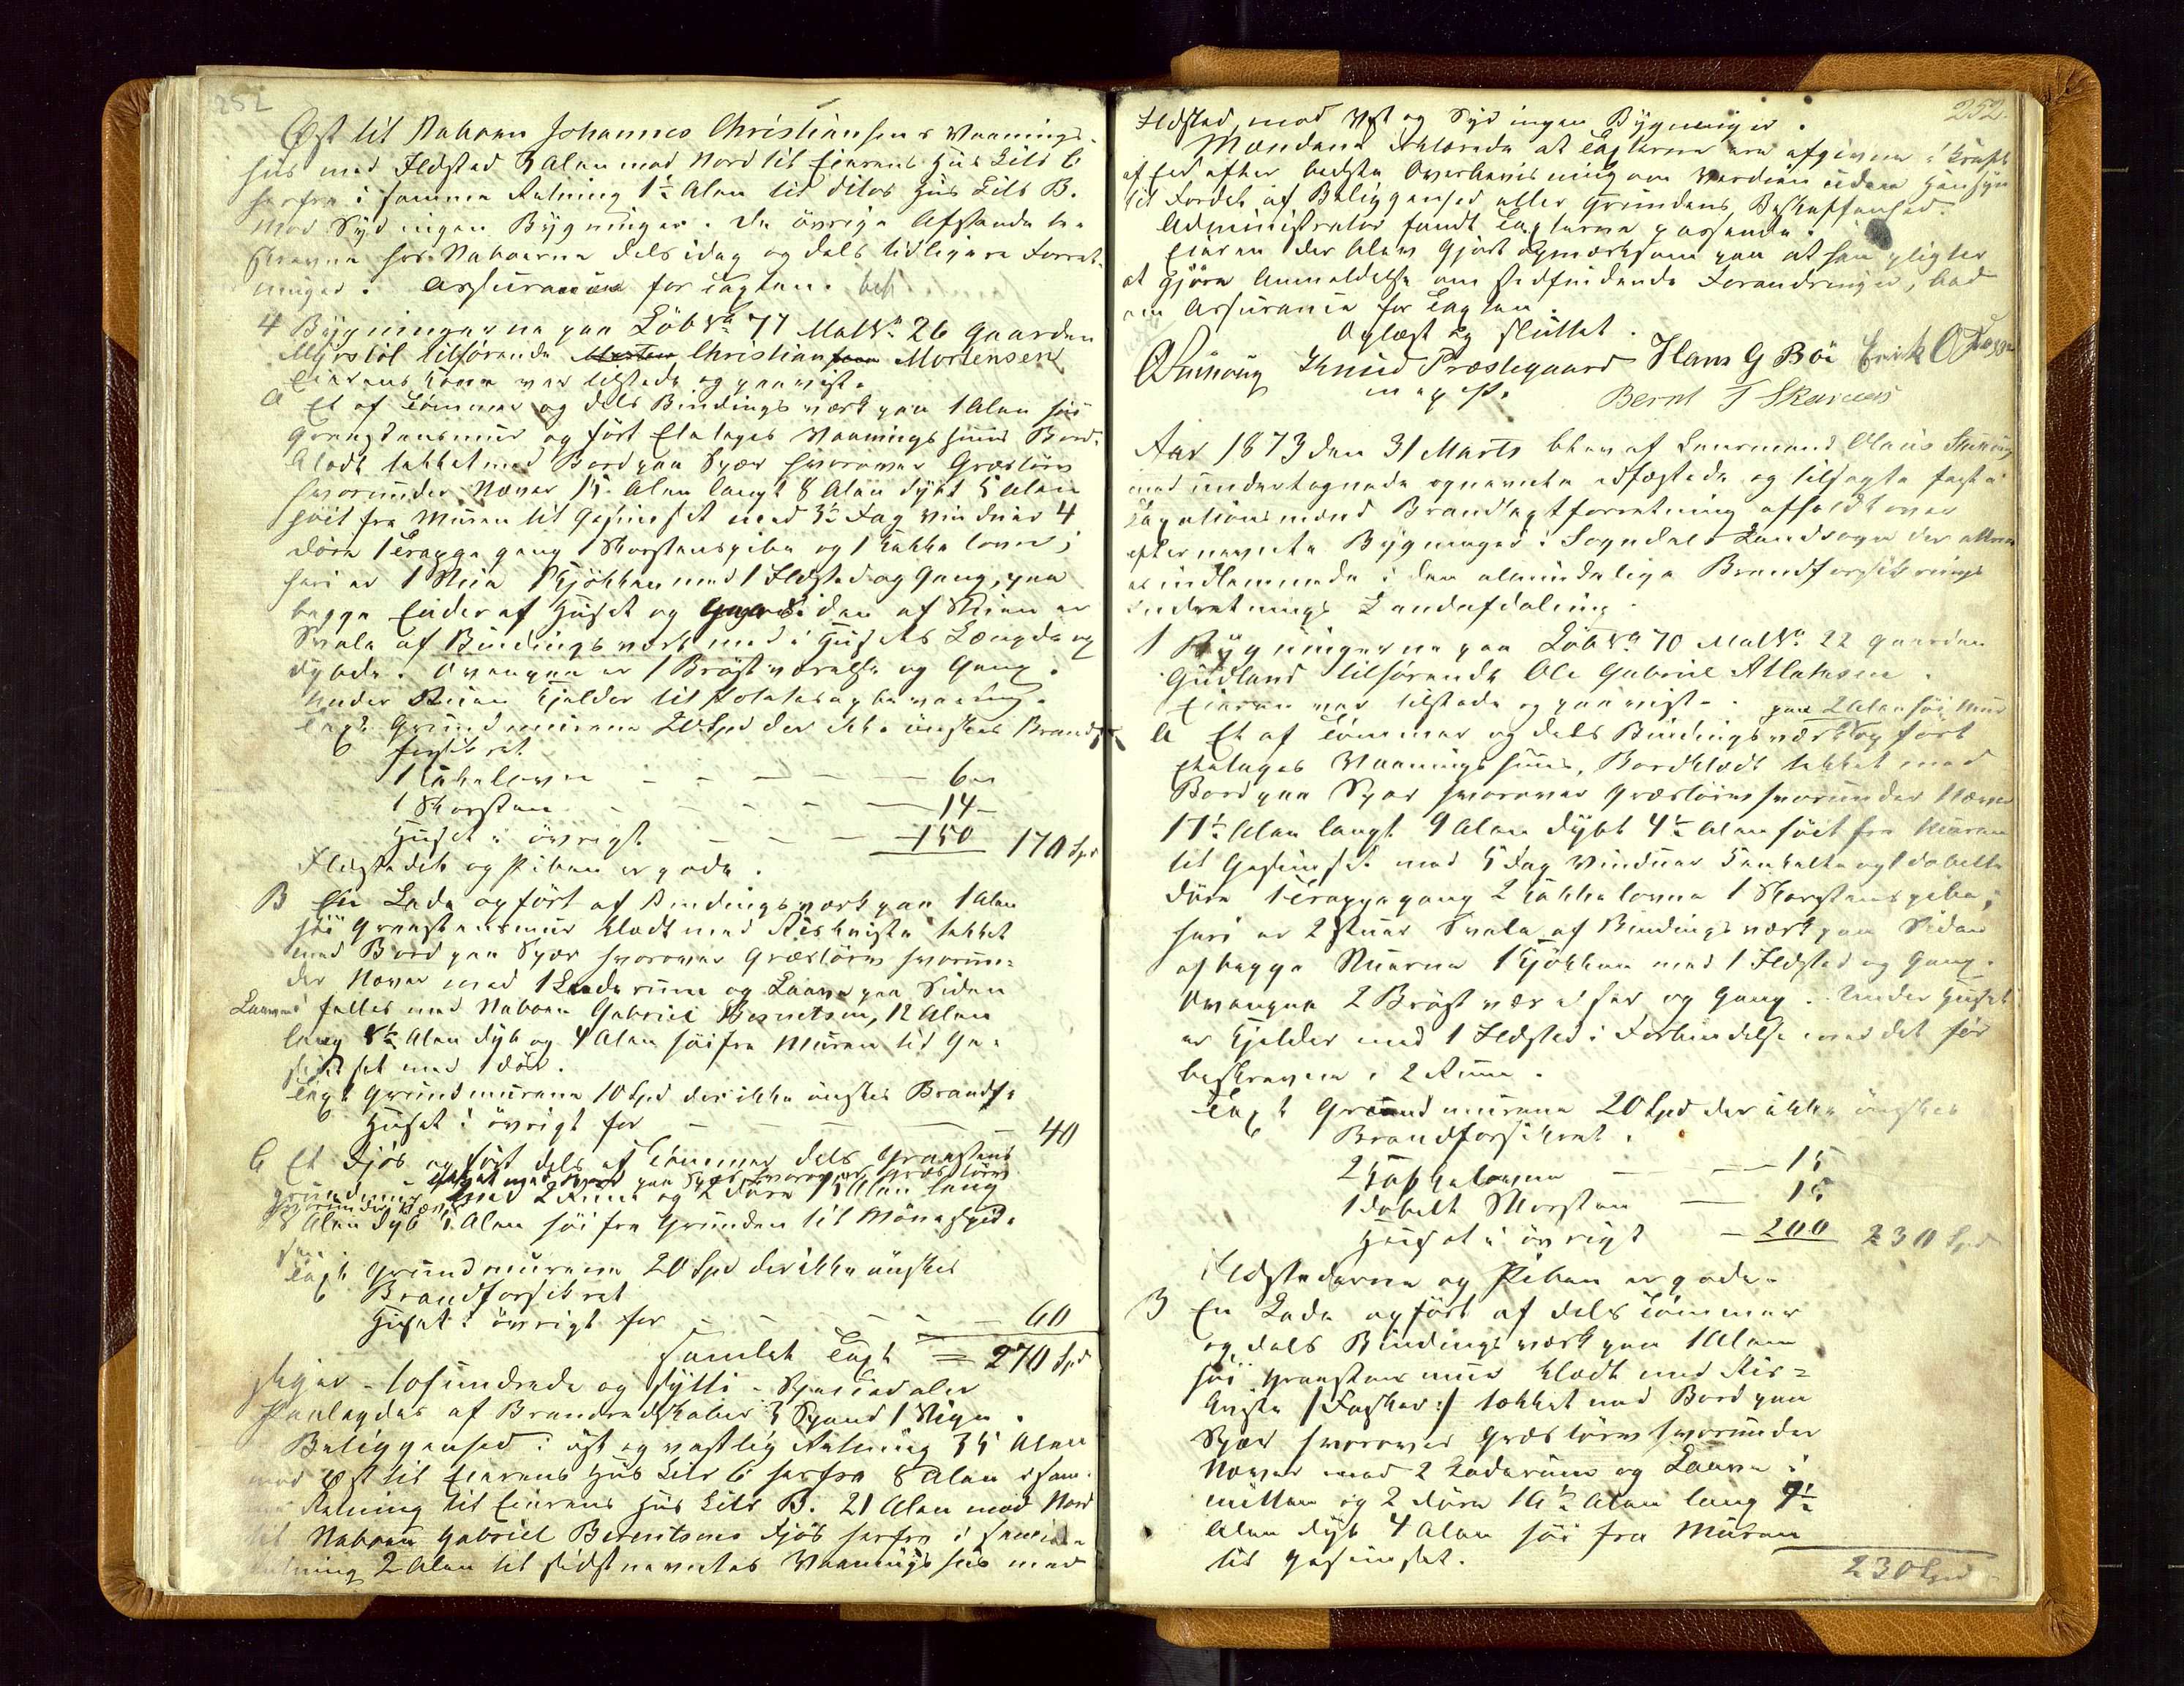 252
Øst til Naboen Johannes Christiansens Vaanings-
hus med Ildsted 3 Alen mod Nord til Eierens Hus Litr C
herfra i samme Retning 1½ Alen til ditos Hus Litr B.
mod Syd ingen Bygninger. De øvrige Afstande be-
skrevne hos Naboerne dels idag og dels tidligere Forret-
ninger. Assurance for Taxten.
4 Bygningerne paa Løb No 71 Mat No 26 Gaarden
Myrstøl tilhørende Morten Christian Mortensen
Eierens Kone var tilstede og paaviste
A Et af Tømmer og dels Bindingsværk paa 1 Alen høi
Graastensmur opført Etetages Vaaningshuus Bord-
klædt tækket med Bord paa Spær hvorover Græstørv
hvorunder Næver 15 Alen langt 8 Alen dybt 5 Alen
høit fra Muren til Gesimset med 3½ Fag Vinduer 4
Døre 1 Trappegang 1 Skorstenspibe og 1 Kakkelovn;
heri er 1 Stue 1 Kjøkken med 1 Ildsted og Gang, paa
begge Ender af Huset og Siden af Stuen er
Svale af Bindingsværk med i Husets Længde og
Dybde. Ovenpaa er 1 Brøstværelse og Gang.
Under Stuen Kjelder til Potetesopbevaring.
Taxt Grundmurene 20 Spd der ikke ønskes Brand-
forsikret
1 Kakelovn - - - - - 6 -
1 Skorsten - - - - - 14 -
Huset i øvrigt - - - - 150 170 Spd
Ildstedet og Piben er gode.
B En Lade opført af Bindingsværk paa 1 Alen
høi Graastensmur klædt med Riskviste tækket
med Bord paa Spær hvorover Græstørv hvorun-
der Næver med 1 Laderum og Laave paa Siden
Laaven i fælles med Naboen Gabriel Berntsen, 12 Alen
lang 8½ Alen dyb og 4 Alen høi fra Muren til Ge-
simset med 1 Dør.
Taxt Grundmurene 10 Spd der ikke ønskes Brandf.
Huset i øvrigt for - - - - 40
C Et Fjøs opført dels af Tømmer dels Graastens
tækket med Bord paa Spær hvorover Græstørv
grundmur med 2 Rum og 2 Døre 15 Alen lang
hvorunder Næver
8 Alen dyb 5 Alen høi fra Grunden til Mønespid-
sen
Taxt Grundmurene 20 Spd der ikke ønskes
Brandforsikret
Huset i øvrigt for - - - - 60
Samlet Taxt = 270 Spd
siger - tohundrede og sytti - Speciedaler
Paalagdes af Brandredskaber 3 Spand 1 Stige.
Beliggenhed: øst og vestlig Retning 35 Alen
mod Øst til Eierens Hus Litr C herfra 8 Alen i sam-
me Retning til Eierens Hus Litr B. 21 Alen mod Nord
til Naboen Gabriel Berentsens Fjøs herfra i samme
Retning 2 Alen til sidstnævntes Vaaningshus med
252.
Ildsted, mod Vest og Syd ingen Bygninger.
Mændene erklærede at Taxterne ere afgivne i Kraft
af Eed efter bedste Overbevisning om Værdien uden Hensyn
til Fordel af Beliggenhed eller Grundens Beskaffenhed.
Administrator fandt Taxterne passende.
Eieren der blev gjort opmærksom paa at han pligter
at gjøre Anmeldelse om stedfindende Forandringer, bad
om Assurance for Taxten.
Oplæst og sluttet.
Knud Præstegaard Hans G Böe Erik O
m. p. P. Bernt T Skarnes
Aar 1873 den 31 Marts blev af Lensmand Olaus
med undertegnede opnævnte edfæstede og tilsagte faste
Taxationsmænd Brandtaxtforretning afholdt over
efternævnte Bygninger i Sogndals Landsogn der allerede
er indlemmede i den almindelige Brandforsikrings
Indretnings Landafdeling.
1 Bygningerne paa Løb No 70 Mat No 22 Gaarden
Gudland tilhørende Ole Gabriel Atlaksen.
Eieren var tilstede og paaviste. paa 2 Alen høi Mur
A Et af Tømmer og dels Bindingsværk opført
etetages Vaaningshuus, Bordklædt tækket med
Bord paa Spær hvorover Græstørv hvorunder Næver
17½ Alen langt 9 Alen dybt 4½ Alen høit fra Muren
til Gesimset med 5 Fag Vinduer 5 enkelte og 1 dobbelte
Døre 1 Trappegang 2 Kakkelovne 1 Skorstenspibe;
heri er 2 Stuer Svale af Bindingsværk paa Siden
af begge Stuerne 1 Kjøkken med 1 Ildsted og Gang.
Ovenpaa 2 Brøstværelser og Gang. Under Huset
er Kjelder med 1 Ildsted i Forbindelse med det før
beskrevne i 2 Rum.
Taxt Grundmurene 20 Spd der ikke ønskes
Brandforsikret.
2 Kakkelovne - - - 15
1 dobelt Skorsten - 15
Huset i øvrigt - 200 230 Spd
Ildstederne og Piben er gode.
B En Lade opført af dels Tømmer
og dels Bindingsværk paa 1 Alen
høi Graastensmur klædt med Ris-
kviste /: Fasker :/ tækket med Bord paa
Spær hvorover Græstørv hvorunder
Næver med 2 Laderum og Laave i
mitten og 2 Døre 16½ Alen lang 9½
Alen dyb 4 Alen høi fra Muren
til Gesimset.
230 Spd